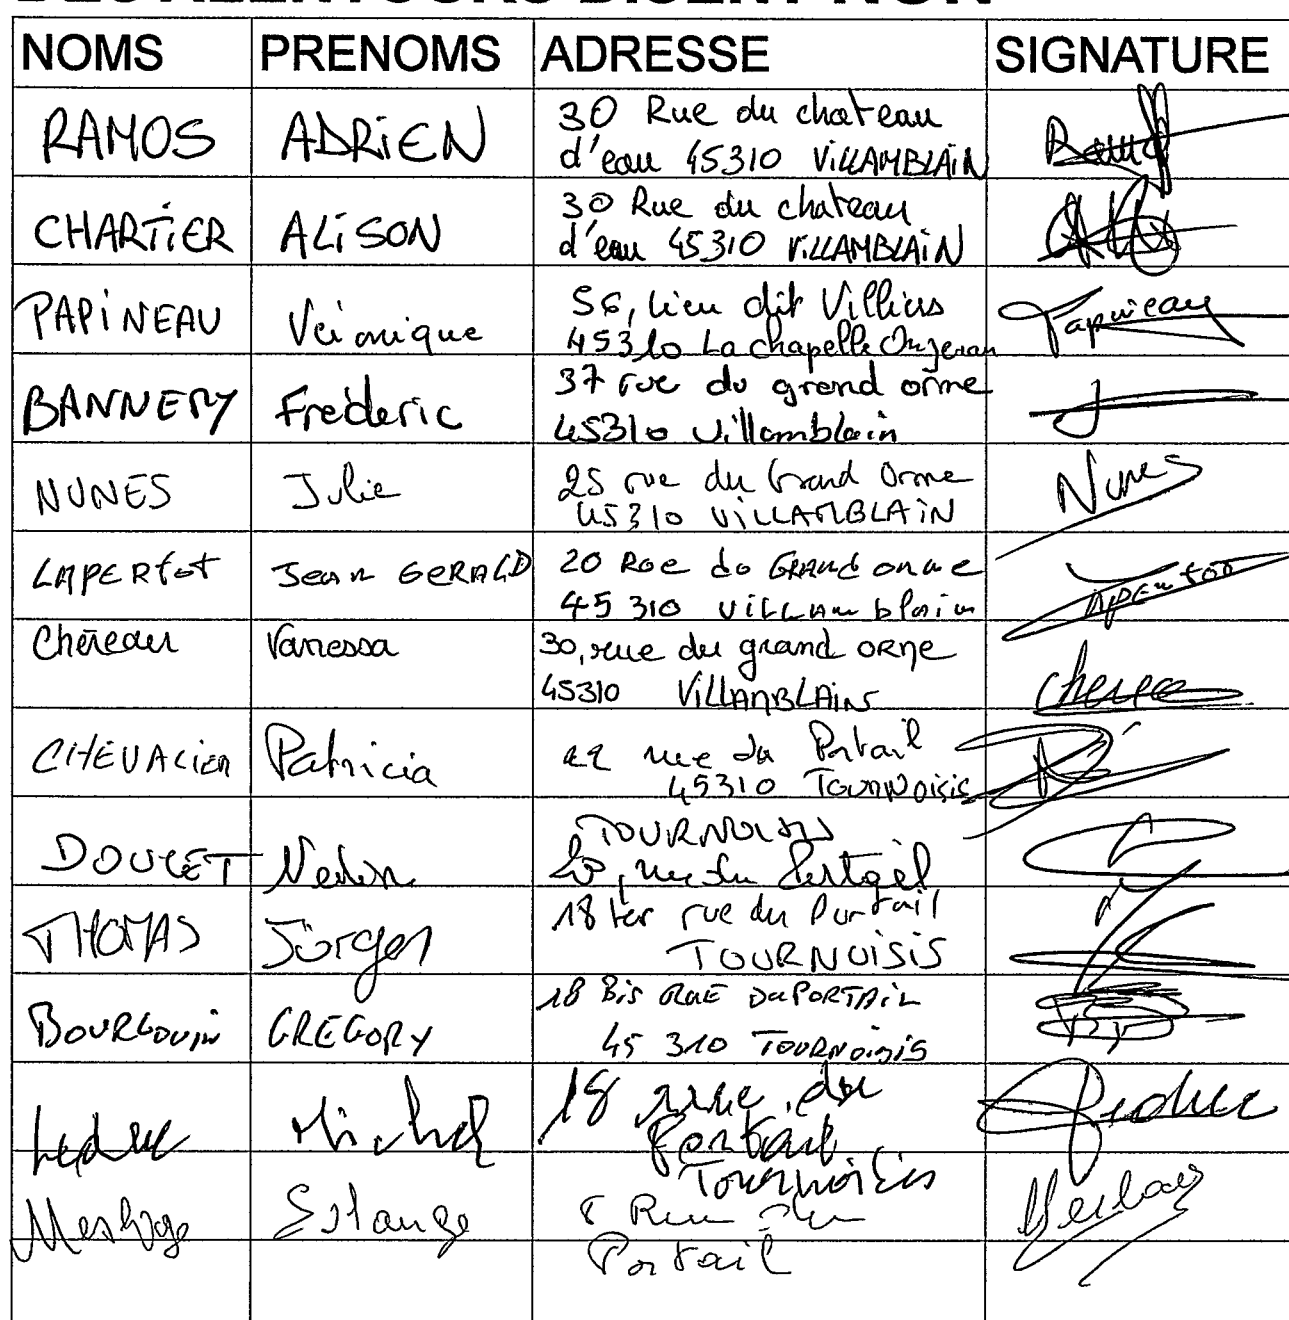 DES ALENTOURS DISENT NON
NOMS PRENOMS ADRESSE SIGNATURE
RAMOS ADRiEN 30 Rue du chateau
d'eau 45310 ViLLAMBLAiN
CHARTiER ALiSON 30 Rue du chateau
d'eau 45310 ViLLAMBLAiN
PAPiNEAU Véronique 56, lieu dit Villiers Papineau
45310 La chapelle Onzerain
BANNERY Frédéric 37 rue du grand orme
45310 Villamblain
NUNES Julie 25 rue du Grand Orme Nunes
45310 ViLLAMBLAiN
LAPERtot Jean GERALD 20 Rue du GRAND orme
45 310 ViLLAmblain
Chereau Vanessa 30, rue du grand orme
45310 ViLLAMBLAins
CHEVALiER Patricia 22 rue du Portail
45310 Tournoisis
DOUCET TOURNOISIS
20, rue du Portail
THOMAS Jürgen 18 ter rue du Portail
TOURNOISIS
BOURGOUiN GREGORY 18 Bis RUE DU PORTAiL
45 310 TOURNoisis
Leduc Michel 18 rue du Leduc
Portail
Tournoisis
Solange 8 Rue du
Portail